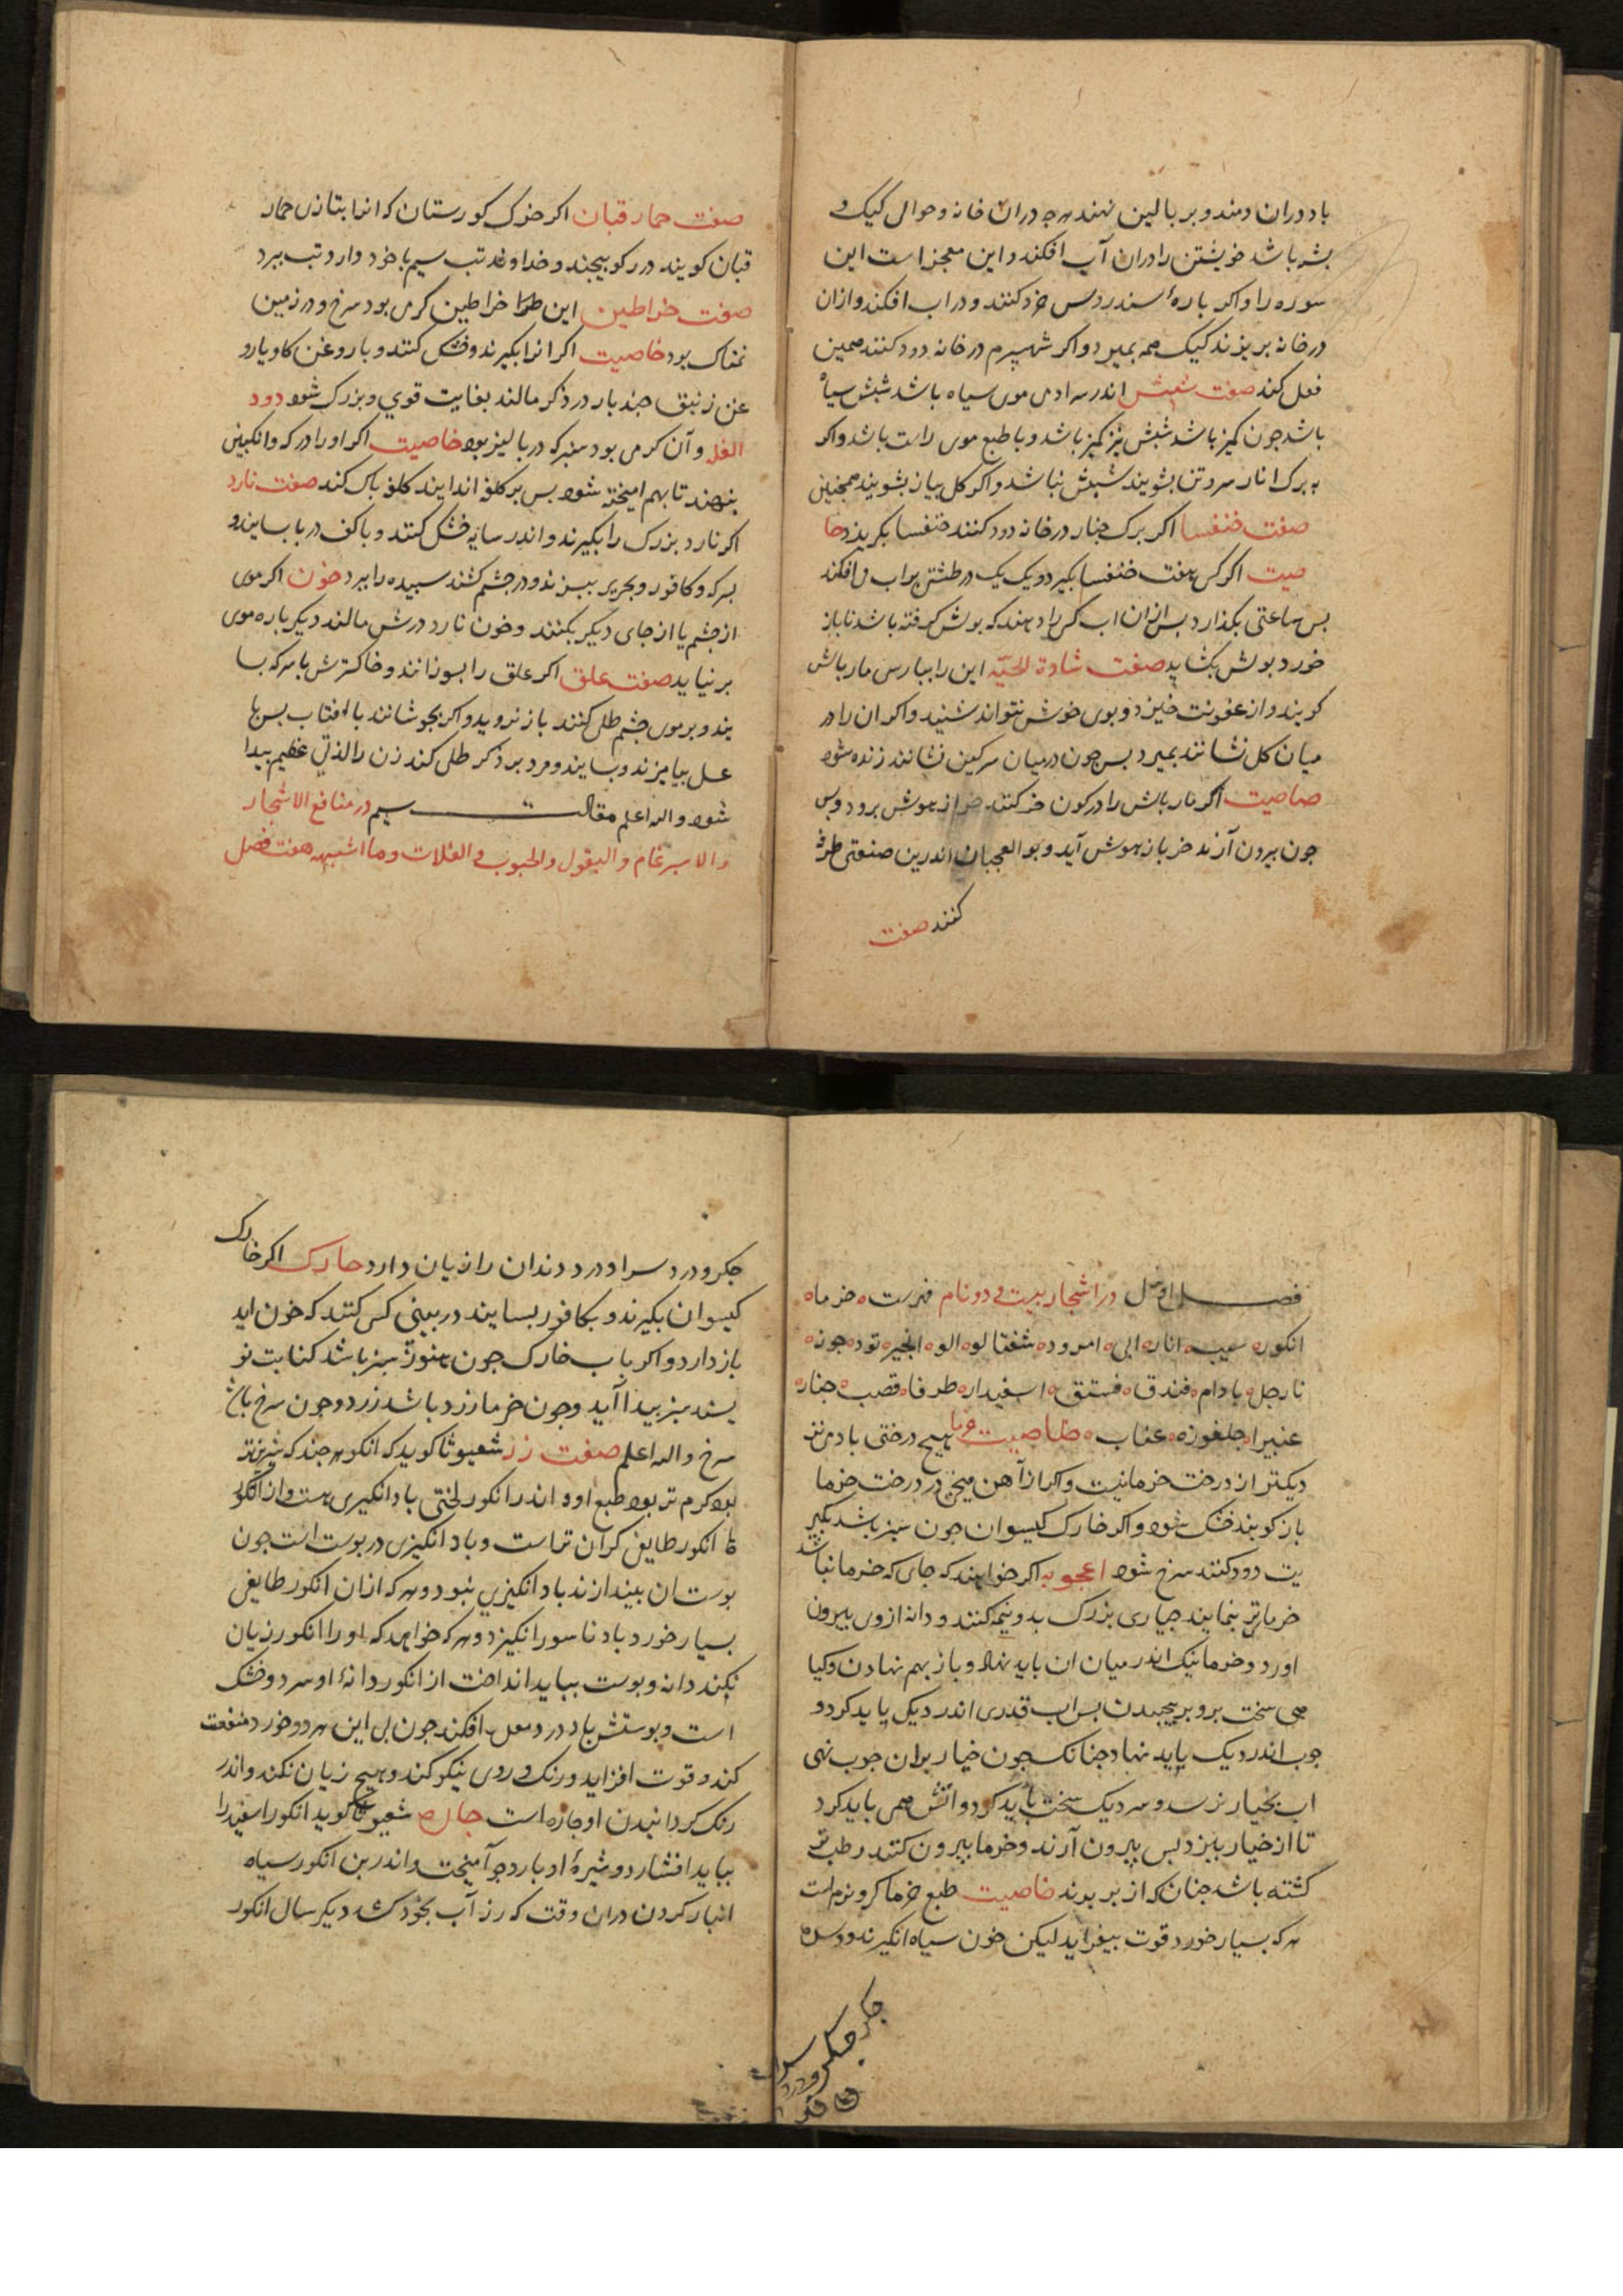 باد دران دمند و بر بالین نهند هرچه دران خانه و حوالی کیک و
بشه باشد خویشتن را دران آب افکند و این معجز است این
سوره را و اکر باره سندروس خرد کنند و در اب افکند و ازان
در خانه بریزند کیک همه بمیرد و اکر شهپرم در خانه دود کنند همین
فعل کند صفت شپش اندر سر ادمی موی سیاه باشد شبش سیاه
باشد جون کمیز باشد شبش نیز کمیز باشد و با طبع موی راست باشد و اکر
به برک انار سر و تن بشویند شبش نباشد و اکر کل بیاز بشویند همجنین
صفت خنفسا اکر برک جنار در خانه دود کنند خنفسا بکریزد خا
صیت اکر کسی هفت خنفسا بکیرد و یک یک در طشتی براب می افکند
بس ساعتی بکذارد بس ازان اب کسی را دهند که بولش کرفته باشد تا باز
خورد بولش بکشاید صفت شادة الحیّه این را ببارسی مار باش
کویند و از عفونت خیزد و بوی خوش نتواند شنید و اکر ان را در
میان کل نشانند بمیرد بس جون در میان سرکین نشانند زنده شود
خاصیت اکر مار باش را در کون خر کنند خر از هوش برود و بس
جون بیرون آرند خر باز بهوش آید و بو العجبان اندرین صنعتی طرفه
کنند صفت
صفت حمار قبان اکر خزک کورستان که انرا بتازی حمار
قبان کویند در رکو بیجند و خداوند تب سیم با خود دارد تب ببرد
صفت خراطین این طرا خراطین کرمی بود سرخ و در زمین
نمناک بود خاصیت اکر انرا بکیرند و خشک کنند و با روغن کاو یا رو
غن زنبق جند بار در ذکر مالند بغایت قوی و بزرک شود دود
الفله و آن کرمی بود سبز که در بالیز بود خاصیت اکر او را در سرکه و انکبین
بنهند تا بهم امیخته شود بس بر کلف اندایند کلف باک کند صفت نارد
اکر نارد بزرک را بکیرند و اندر سایه خشک کنند و با کف دریا بسایند و
بسرکه و کافور و بحریر ببیزند و در جشم کشند سبیده را ببرد خون اکر موی
از جشم یا از جای دیکر بکنند و خون نارد درش مالند دیکر باره موی
بر نیاید صفت علق اکر علق را بسوزانند و خاکسترش با سرکه بسا
یند و بر موی جشم طلی کنند باز نروید و اکر بجوشانند با افتاب بس با
عسل بیامیزند و بسایند و مرد بر ذکر طلی کند زن را لذتی عظیم بیدا
شود والله اعلم مقالت سیم در منافع الاشجار
والاسبرغام والبقول والحبوب و الغلات وما اشبهه هفت فصل
فصل اول در اشجار بیست و دو نام فهرست خرما
انکور سیب انار ابی امرود شفتالو الو انجیر تود جوز
نارجل بادام فندق فستق اسفیدار طرفا قصب جنار
غبیرا جلغوزه عناب خاصیت خرما هیچ درختی بادمی نز
دیکتر از درخت خرما نیست و اکر از آهن میخی در درخت خرما
باز کوبند خشک شود و اکر خارک کیسوان جون سبز باشد بکبر
یت دود کنند سرخ شود اعجوبه اکر خواهند که جای که خرما نباشد
خرما تر بنمایند خیاری بزرک بدونیمه کنند و دانه ازوی بیرون
اورد و خرما نیک اندر میان ان باید نهاد و باز بهم نهادن و کیا
هی سخت برو بربیجیدن بس اب قدری اندر دیک باید کرد و
جوب اندر دیک باید نهاد جنانک جون خیار بران جوب نهی
اب بخیار نرسد و سر دیک سخت باید کرد و اتش همی باید کرد
تا از خیار ببزد بس بیرون آرند و خرما بیرون کنند رطب تر
کشته باشد جنان که از بر بدند خاصیت طبع خرما کرم و نرم است
هرکه بسیار خورد قوت بیفزاید لیکن خون سیاه انکیزند و سده
جکر
جکر و درد
جکر و درد سر او درد دندان را زیان دارد خارک اکر خارک
کیسوان بکیرند و بکافور بسایند در بینی کسی کنند که خون اید
باز دارد و اکر باب خارک جون هنوز سبز باشد کتابت نو
یسند سبز بیدا آید و جون خرما زرد باشد زرد و جون سرخ باشد
سرخ والله اعلم صفت رز شعیوثا کوید که انکور هر جند که شیرینتر
بود کرم تر بود طبع او و اندر انکور لختی باد انکیزی هست و از انکور
ها انکور طایفی کران تر است و باد انکیزی در بوست است جون
بوست ان بیندازند باد انکیزی نبود و هرکه ازان انکور طایفی
بسیار خورد باد ناسور انکیزد و هرکه خواهد که او را انکور زیان
نکند دانه و بوست بباید انداخت از انکور دانه او سرد و خشک
است و بوستش باد در معده افکند جون بی این هر دو خورد منفعت
کند و قوت افزاید و رنک و روی نیکو کند و هیج زیان نکند و اندر
رنک کردانیدن او جاره است جاره شعیوثا کوید انکور اسفید را
بباید افشارد و شیره او بارد جو آمیخت و اندر بن انکور سیاه
انبار کردن دران وقت که رز آب بخود کشد دیکر سال انکور